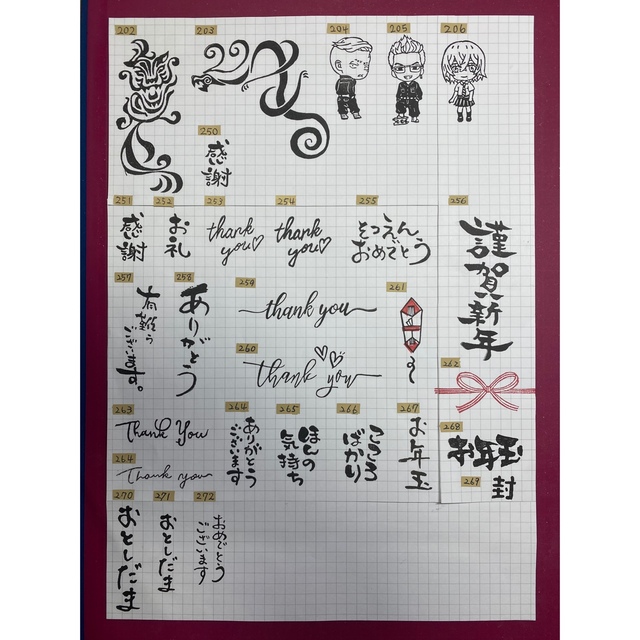 202
203
204
205
206
250
感謝
251
252
253
254
255
256
感謝
お礼
thank you
thank you
そつえん
おめでとう
謹賀新年
257
258
259
261
有難う
ございます。
ありがとう
thank you
260
thank you
262
263
264
265
266
267
268
Thank You
ありがとう
ございます
ほんの
気持ち
こころ
ばかり
お年玉
お年玉
264
Thank you
269
封
270
271
272
おとしだま
おとしだま
おめでとう
ございます